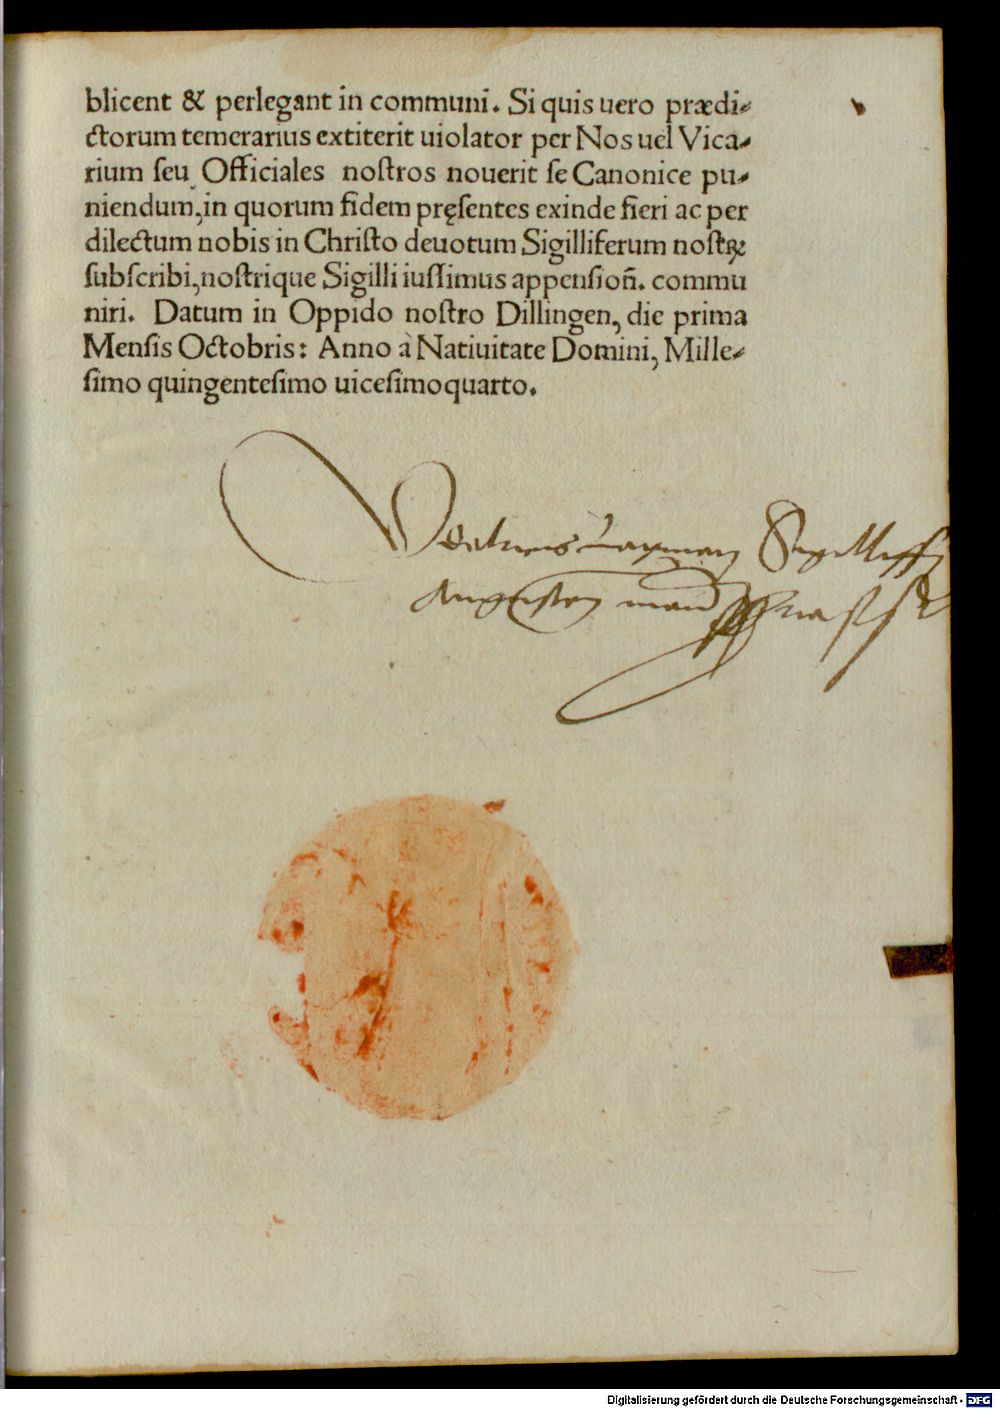 blicent & perlegant in communi. Si quis uero prædi⸗
ctorum temerarius extiterit uiolator per Nos uel Vica⸗
rium ſeu Officiales noſtros nouerit ſe Canonice pu⸗
niendum, in quorum fidem pręſentes exinde fieri ac per
dilectum nobis in Chriſto deuotum Sigilliferum noſtꝝ
ſubſcribi, noſtrique Sigilli iuſſimus appenſioñ. commu
niri. Datum in Oppido noſtro Dillingen, die prima
Menſis Octobris: Anno à Natiuitate Domini, Mille⸗
ſimo quingenteſimo uiceſimoquarto.
Sigilliff
Augusten
Digitalisierung gefördert durch die Deutsche Forschungsgemeinschaft - DFG